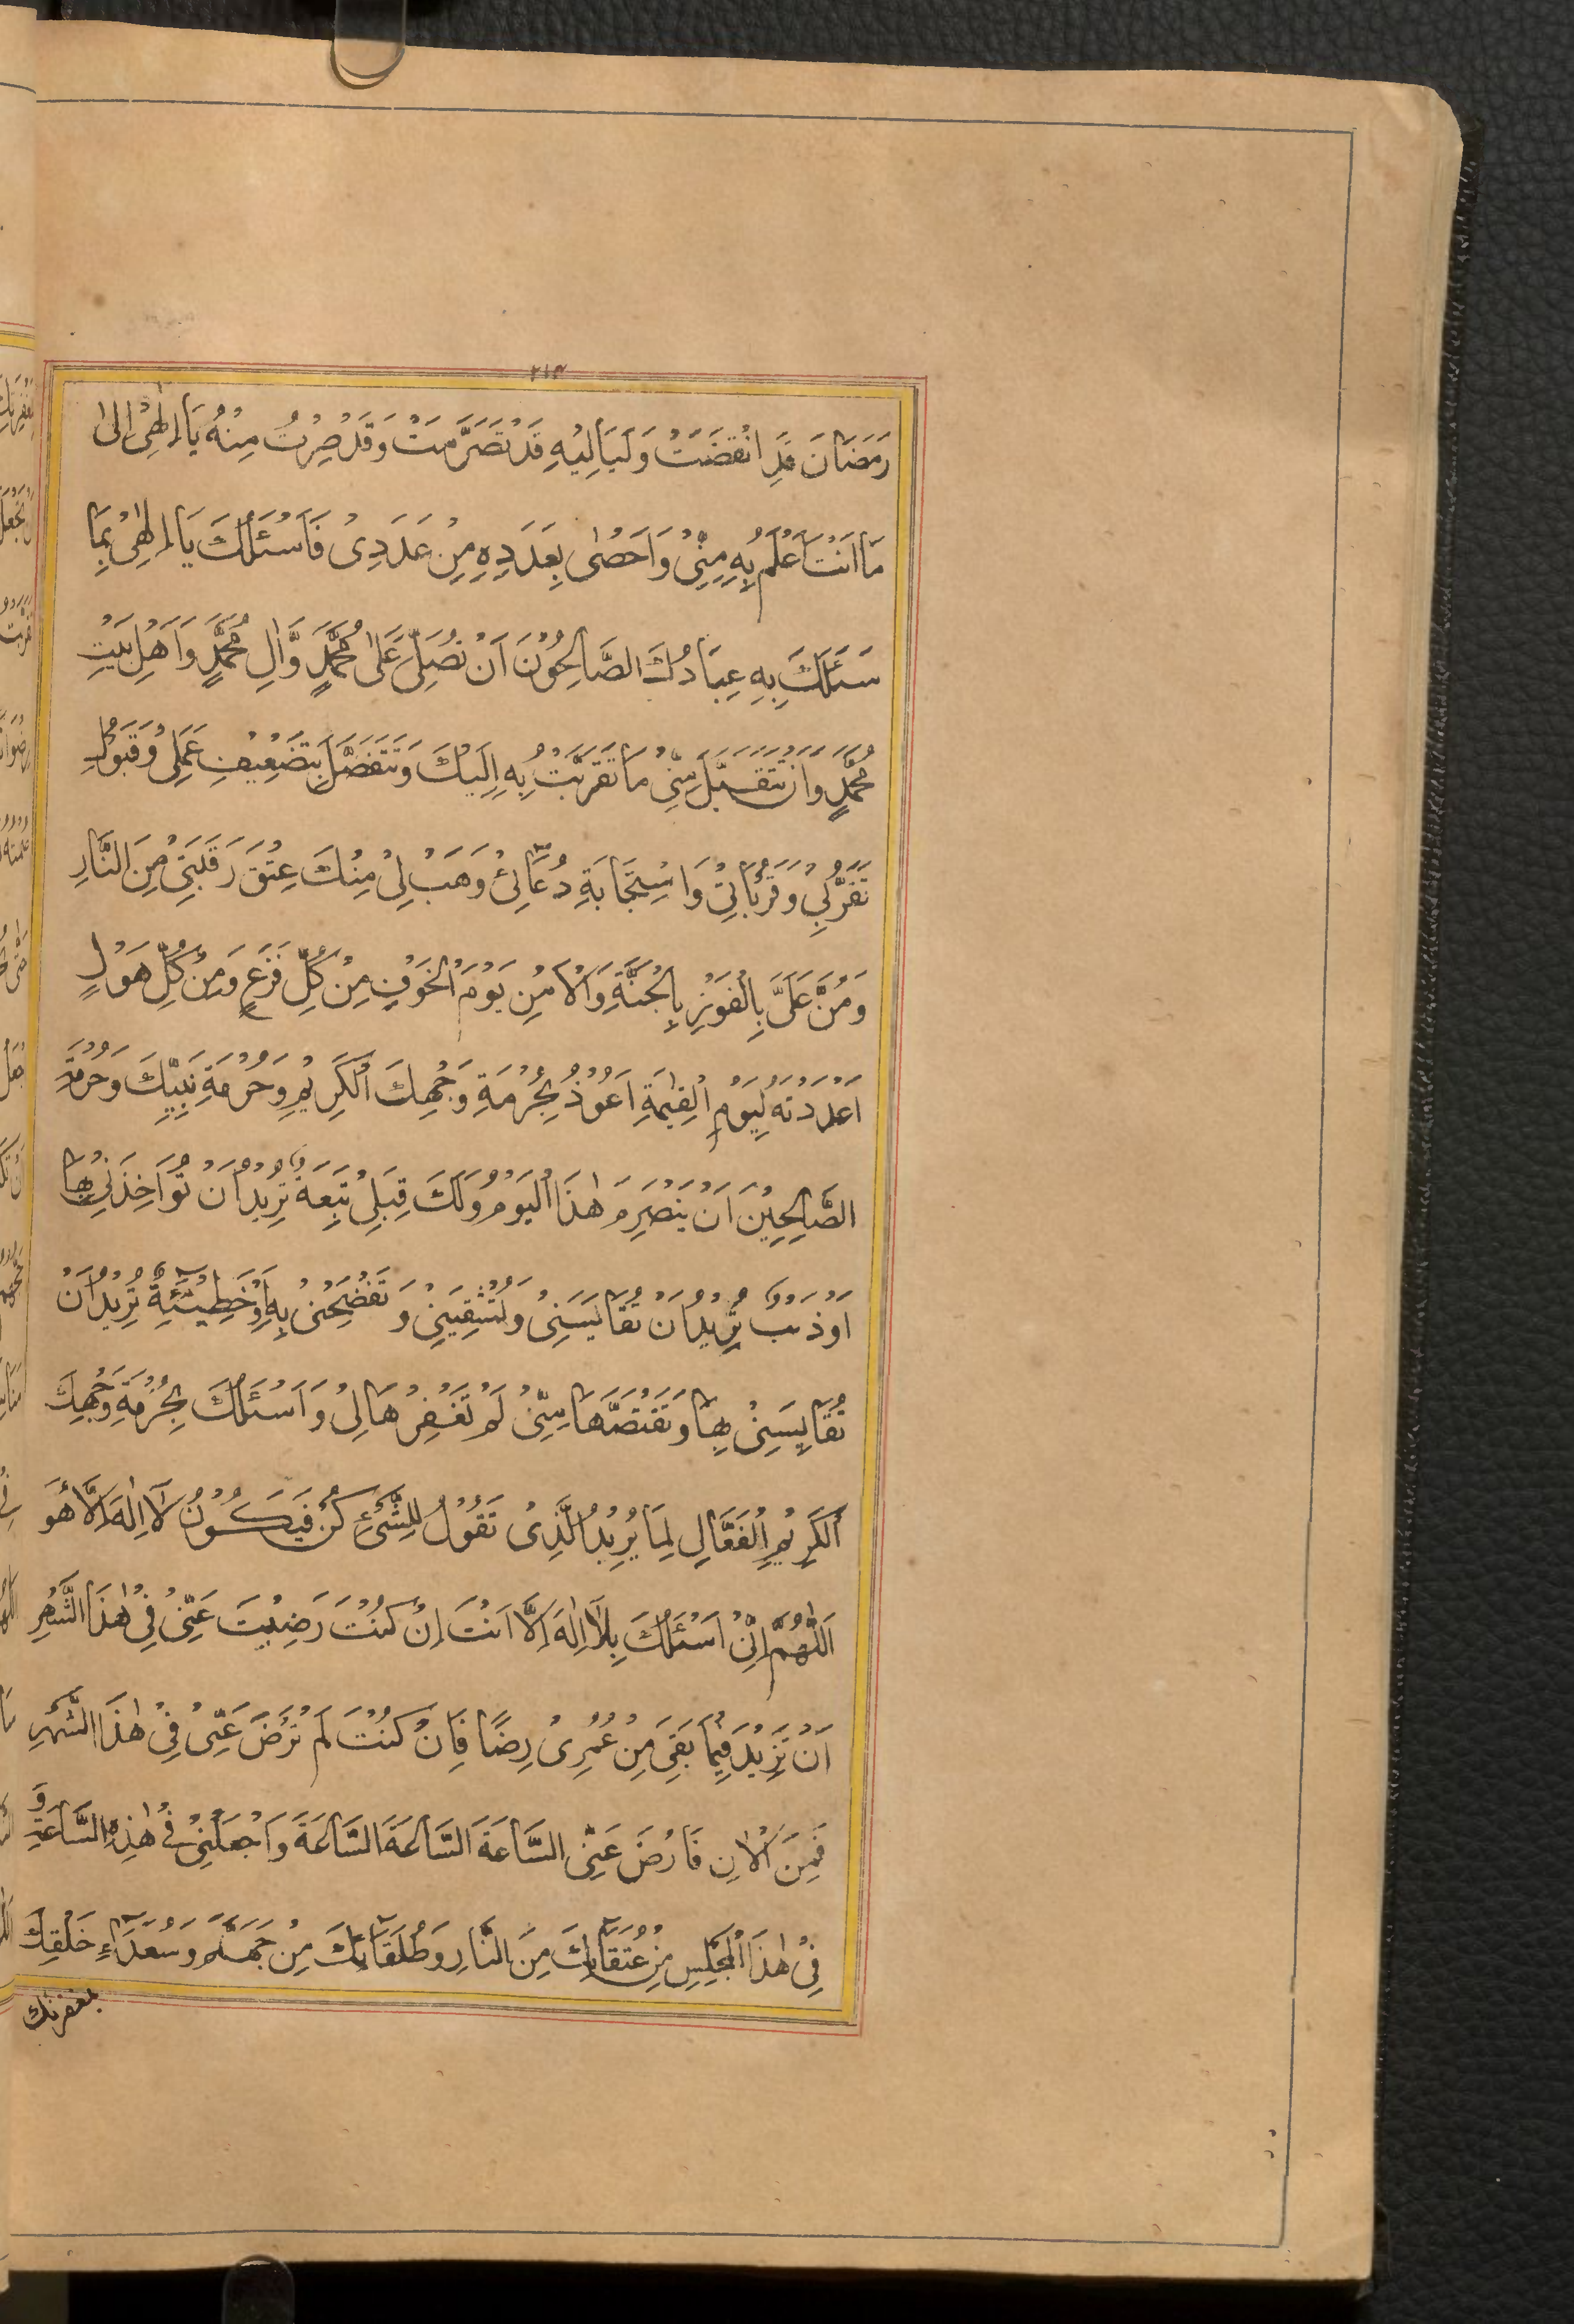 ۲۱۴
رَمَضَانَ قَدِ انْقَضَتْ وَلَيَالِيْهِ قَدْ تَصَرَّمَتْ وَقَدْ صِرْتُ مِنْهُ يَا اِلٰهِىْ اِلىٰ
مَا اَنْتَ اَعْلَمُ بِهِ مِنِّىْ وَاَحْصٰى بِعَدَدِهِ مِنْ عَدَدِىْ فَاَسْئَلُكَ يَا اِلٰهِىْ بِمَا
سَئَلَكَ بِهِ عِبَادُكَ الصَّالِحُوْنَ اَنْ تُصَلِّىَ عَلىٰ مُحَمَّدٍ وَّاٰلِ مُحَمَّدٍ وَاَهْلِ بَيْتِ
مُحَمَّدٍ وَاَنْ تَتَقَبَّلَ مِنِّىْ مَا تَقَرَّبْتُ بِهِ اِلَيْكَ وَتَتَفَضَّلَ بِتَضْعِيْفِ عَمَلِىْ وَقَبُوْلِ
تَقَرُّبِىْ وَقُرُبَاتِىْ وَاسْتِجَابَةِ دُعَائِىْ وَهَبْ لِىْ مِنْكَ عِتْقَ رَقَبَتِىْ مِنَ النَّارِ
وَمُنَّ عَلَىَّ بِالْفَوْزِ بِالْجَنَّةِ وَالْاَمْنِ يَوْمَ الْخَوْفِ مِنْ كُلِّ فَزَعٍ وَمِنْ كُلِّ هَوْلٍ
اَعْدَدْتَهُ لِيَوْمِ الْقِيٰمَةِ اَعُوْذُ بِحُرْمَةِ وَجْهِكَ الْكَرِيْمِ وَحُرْمَةِ نَبِيِّكَ وَحُرْمَةِ
الصَّالِحِيْنَ اَنْ يَنْصَرِمَ هٰذَا الْيَوْمُ وَلَكَ قِبَلِىْ تَبِعَةٌ تُرِيْدُ اَنْ تُؤَاخِذَنِىْ بِهَا
اَوْ ذَنْبٌ تُرِيْدُ اَنْ تُقَايِسَنِىْ وَتُشْقِيَنِىْ وَتَفْضَحَنِىْ بِهِ اَوْ خَطِيْئَةٌ تُرِيْدُ اَنْ
تُقَايِسَنِىْ بِهَا وَتَقْتَصَّهَا مِنِّىْ لَمْ تَغْفِرْهَا لِىْ وَاَسْئَلُكَ بِحُرْمَةِ وَجْهِكَ
الْكَرِيْمِ الْفَعَّالِ لِمَا يُرِيْدُ الَّذِىْ تَقُوْلُ لِلشَّىْءِ كُنْ فَيَكُوْنُ لَا اِلٰهَ اِلَّا هُوَ
اَللّٰهُمَّ اِنِّىْ اَسْئَلُكَ بِلَا اِلٰهَ اِلَّا اَنْتَ اِنْ كُنْتَ رَضِيْتَ عَنِّىْ فِىْ هٰذَا الشَّهْرِ
اَنْ تَزِيْدَ فِيْمَا بَقِىَ مِنْ عُمْرِىْ رِضًا فَاِنْ كُنْتَ لَمْ تَرْضَ عَنِّىْ فِىْ هٰذَا الشَّهْرِ
فَمِنَ الْاٰنِ فَارْضَ عَنِّىْ السَّاعَةَ السَّاعَةَ السَّاعَةَ وَاجْعَلْنِىْ فِىْ هٰذِهِ السَّاعَةِ وَ
فِىْ هٰذَا الْمَجْلِسِ مِنْ عُتَقَائِكَ مِنَ النَّارِ وَطُلَقَائِكَ مِنْ جَهَنَّمَ وَسُعَدَاءِ خَلْقِكَ
بمغفرتك